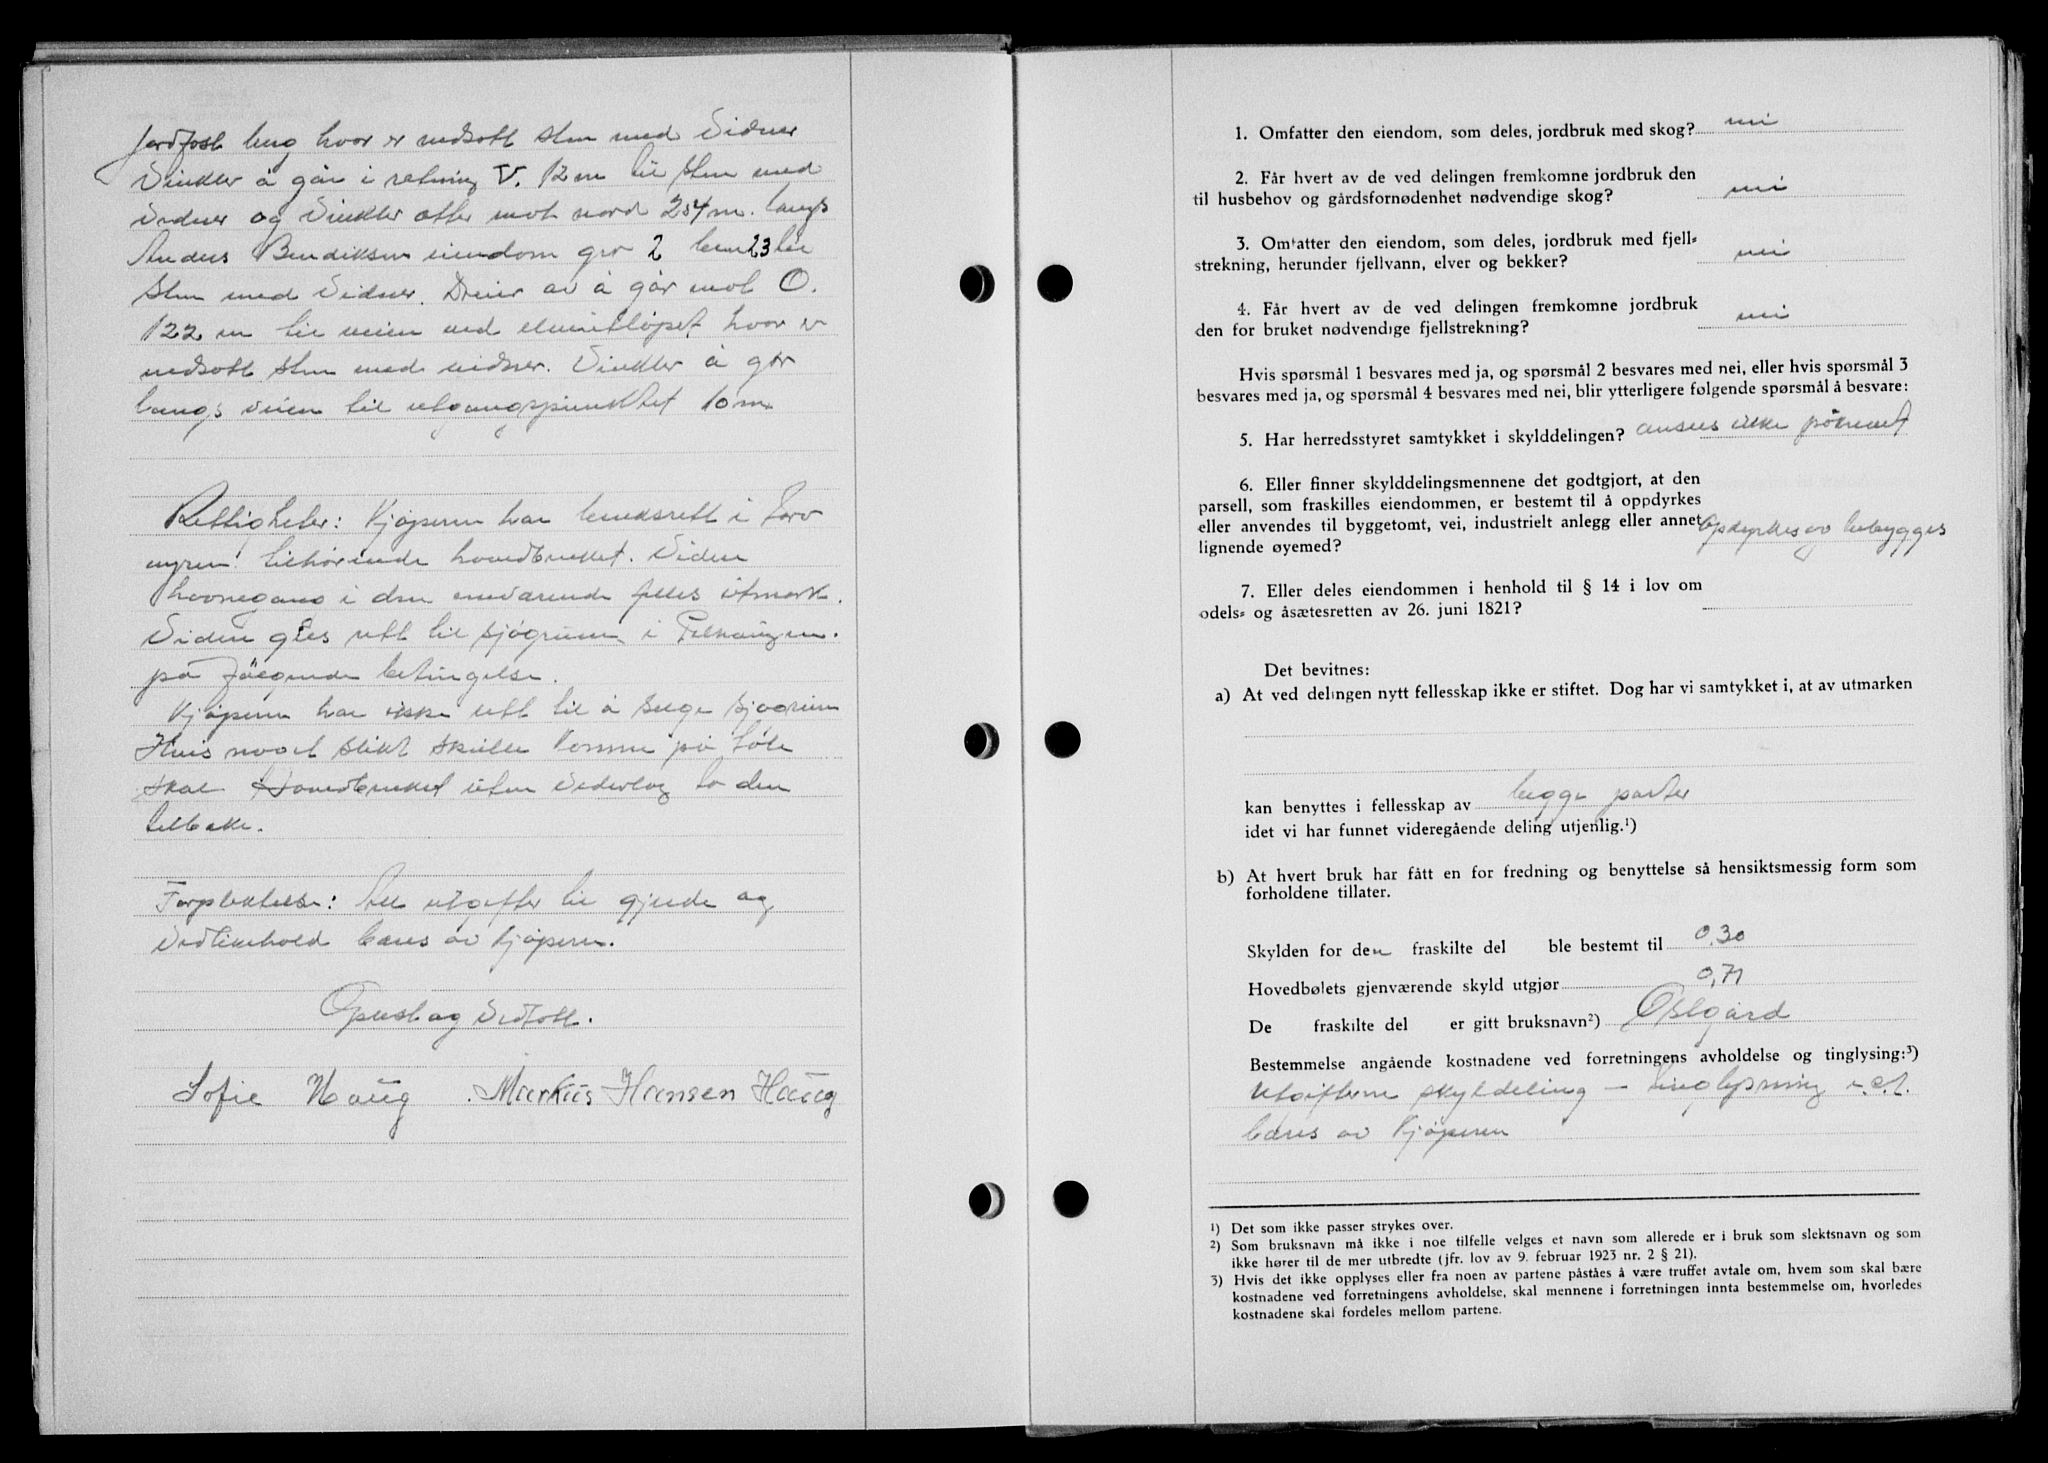 Jordfast berg hvor er nedsatt sten med Vidner
Vinkler å går i retning V. 12 m til sten med
Vidner og Vinkler atter mot nord 254 m. langs
Anders Bendiksen eiendom gr 2 brn 23 til
sten med Vidner. Dreier av å går mot O.
122 m til veien ved hvor er
nedsatt sten med vidner. Vinkler å går
langs veien til utgangspunktet 10 m
Rettigheter: Kjøperen har bruksrett i torv
myren tilhørende hovedbruket. Viden
havnegang i den nuværende felles utmark.
Viden gies rett til sjøgrunn i
på følgende betingelse.
Kjøperen har ikke rett til å selge sjøgrunn
Hvis noget slikt skulle komme på tale
skal Hovedbruket uten Vederlag ta den
tilbake.
Forpliktelse: Alle utgifter til gjerde og
Vedlikehold bæres av Kjøperen.
Oplest og Vedtatt.
Sofie Haug Markus Hansen Haug
1. Omfatter den eiendom, som deles, jordbruk med skog? nei
2. Får hvert av de ved delingen fremkomne jordbruk den
til husbehov og gårdsfornødenhet nødvendige skog? nei
3. Omfatter den eiendom, som deles, jordbruk med fjell-
strekning, herunder fjellvann, elver og bekker? nei
4. Får hvert av de ved delingen fremkomne jordbruk
den for bruket nødvendige fjellstrekning? nei
Hvis spørsmål 1 besvares med ja, og spørsmål 2 besvares med nei, eller hvis spørsmål 3
besvares med ja, og spørsmål 4 besvares med nei, blir ytterligere følgende spørsmål å besvare:
5. Har herredsstyret samtykket i skylddelingen? ansees ikke påkrevet
6. Eller finner skylddelingsmennene det godtgjort, at den
parsell, som fraskilles eiendommen, er bestemt til å oppdyrkes
eller anvendes til byggetomt, vei, industrielt anlegg eller annet
lignende øyemed? Opdyrkes og bebygges
7. Eller deles eiendommen i henhold til § 14 i lov om
odels- og åsætesretten av 26. juni 1821?
Det bevitnes:
a) At ved delingen nytt fellesskap ikke er stiftet. Dog har vi samtykket i, at av utmarken
kan benyttes i fellesskap av begge parter
idet vi har funnet videregående deling utjenlig.¹)
b) At hvert bruk har fått en for fredning og benyttelse så hensiktsmessig form som
forholdene tillater.
Skylden for den fraskilte del ble bestemt til 0,30
Hovedbølets gjenværende skyld utgjør 0,71
De fraskilte del er gitt bruksnavn²) Øslgård
Bestemmelse angående kostnadene ved forretningens avholdelse og tinglysing:³)
Utgifterne skyldeling – tinglysning
bæres av Kjøperen
1) Det som ikke passer strykes over.
2) Som bruksnavn må ikke i noe tilfelle velges et navn som allerede er i bruk som slektsnavn og som
ikke hører til de mer utbredte (jfr. lov av 9. februar 1923 nr. 2 § 21).
3) Hvis det ikke opplyses eller fra noen av partene påståes å være truffet avtale om, hvem som skal bære
kostnadene ved forretningens avholdelse, skal mennene i forretningen innta bestemmelse om, hvorledes
kostnadene skal fordeles mellom partene.